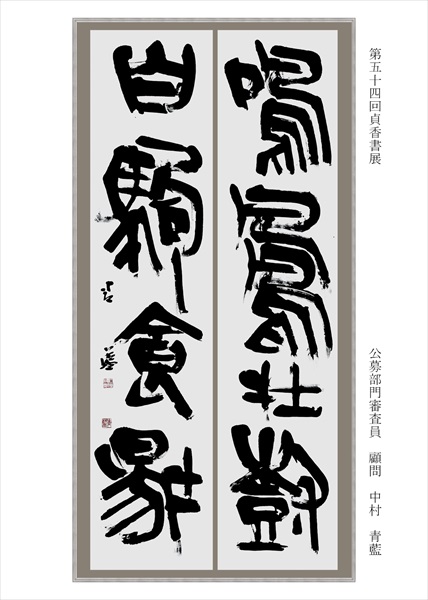 第五十四回貞香書展
公募部門審査員　顧問　中村　青藍
鳴鳳在樹
白駒食場
青藍